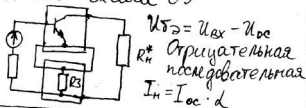 Uбэ = Uвх − Uос
Отрицательная
последовательная
Iн = Iос · α
Rн*
R3